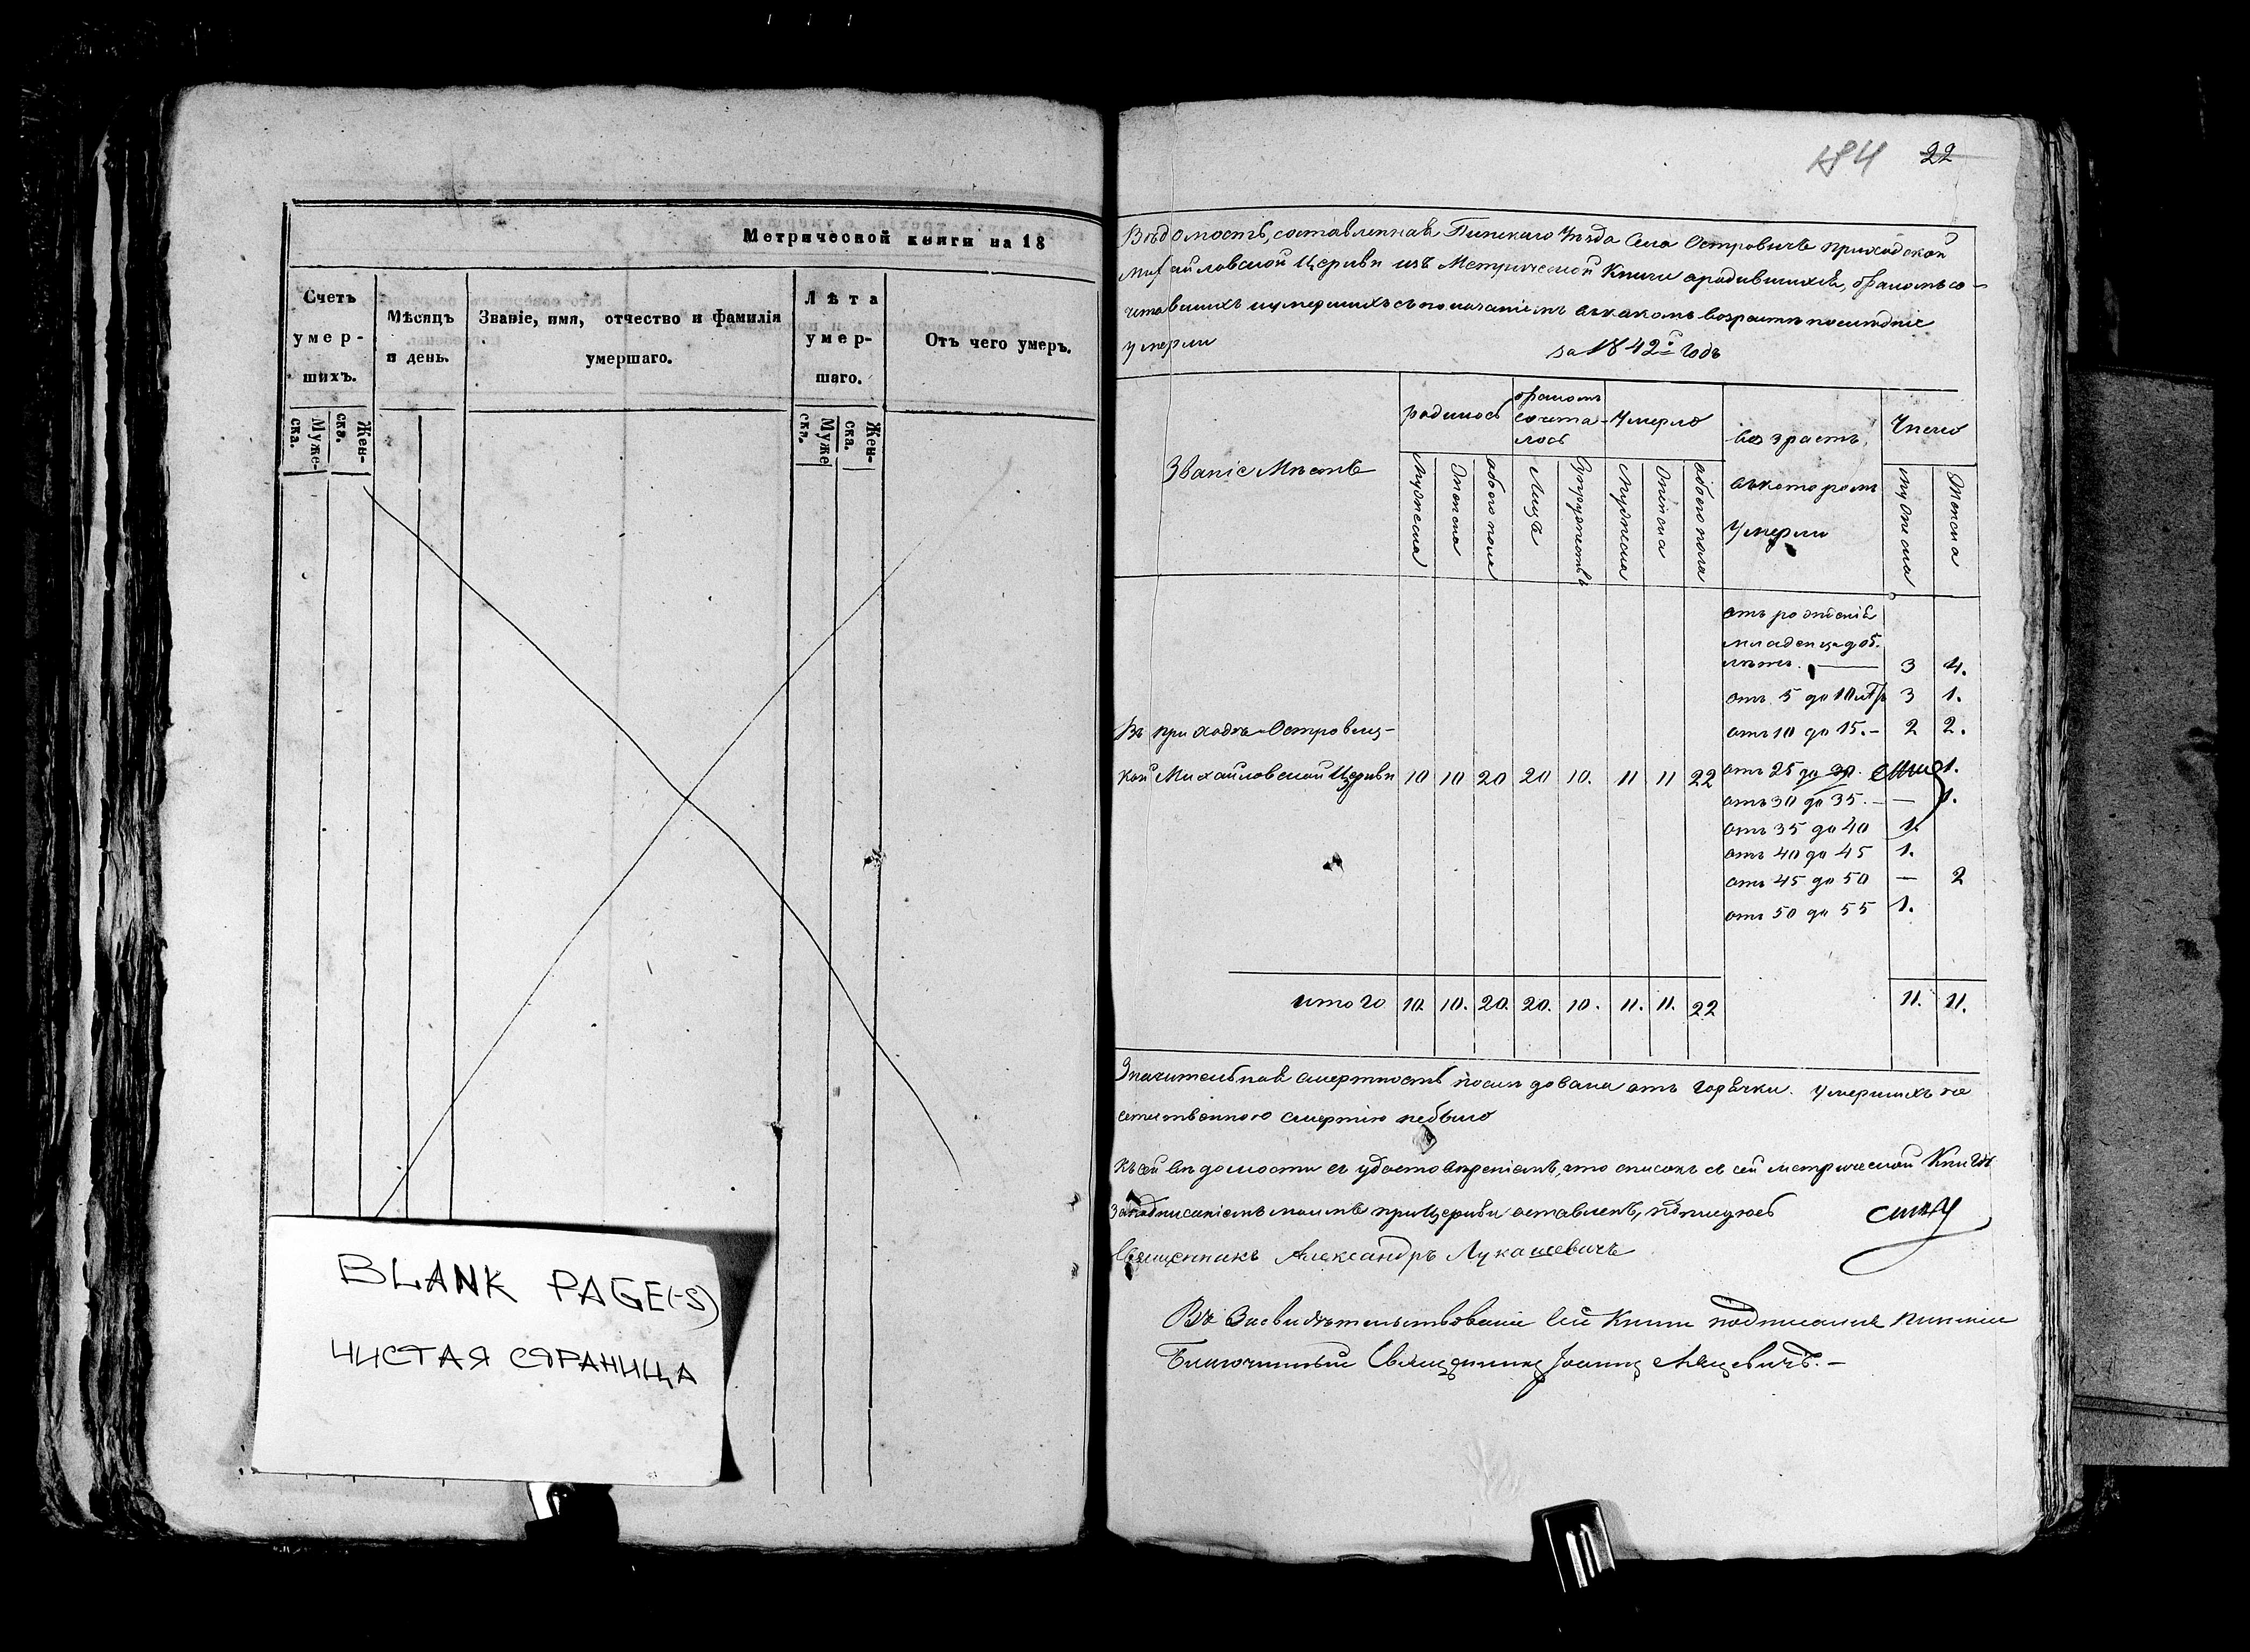 Метрической книги на 18
Счетъ умер-шихъ.
Мѣсяцъ и день.
Званіе, имя, отчество и фамилія умершаго.
Лѣта умер-шаго.
Отъ чего умеръ.
Муже-ска.
Жен-ска.
Муже-ска.
Жен-ска.
BLANK PAGE(-S)
ЧИСТАЯ СТРАНИЦА
184 22
Вѣдомость, составленная Пинскаго Уѣзда Села Островичъ приходской
Михайловской Церкви изъ Метрической Книги о родившихся, бракомъ со-
четавшихъ и умершихъ съ показаніемъ въ какомъ возрастѣ послѣдніе
умерли
за 1842й годъ
Званіе Мѣстъ
родилось
бракомъ сочета-лось
Умерло
возрастъ, въ которомъ Умерли
Число
Мужеска
Женска
обоего пола
Лицъ
Супружествъ
Мужеска
Женска
обоего пола
Мужеска
Женска
отъ рожденія
младенца до 5.
лѣтъ. — 3 4.
отъ 5 до 10 лѣтъ 3 1.
отъ 10 до 15. – 2 2.
отъ 25 до 30. 1.
отъ 30 до 35. – — 1.
отъ 35 до 40 1.
отъ 40 до 45 1.
отъ 45 до 50 — 2
отъ 50 до 55 1.
Въ приходѣ Островиц-
кой Михайловской Церкви 10 10 20 20 10. 11 11 22
итого 10. 10. 20. 20. 10. 11. 11. 22 11. 11.
Значительная смертность послѣдовала отъ горячки. Умершихъ не
естественною смертію небыло
Къ сей вѣдомости съ удостовѣреніемъ, что списокъ съ сей метрической Книги
за подписаніемъ моимъ при Церкви оставленъ, подписуюсь
Священникъ Александръ Лукашевичъ
Въ Засвидѣтельствованіе сей Книги подписался Пинскій
Благочинный Священникъ Іоаннъ